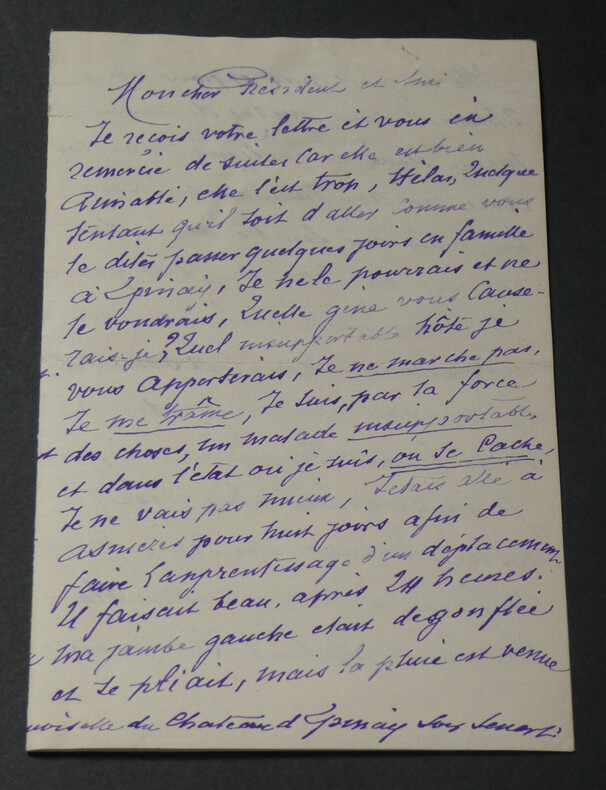 Mon cher Président et Ami
Je reçois votre lettre et vous en
remercie de suite car elle est bien
aimable, elle l'est trop, Hélas, Quelque
tentant qu'il soit d'aller comme vous
le dites passer quelques jours en famille
à Epinay, Je ne le pourrais et ne
le voudrais, Quelle gêne vous cause-
rais-je, Quel insupportable hôte je
vous apporterais, Je ne marche pas,
Je me traîne, Je suis, par la force
des choses, un malade insupportable,
et dans l'état où je suis, on se cache,
Je ne vais pas mieux, J'étais allé à
Asnières pour huit jours afin de
faire l'apprentissage d'un déplacement
Il faisait beau, après 24 heures.
ma jambe gauche était dégonflée
et se pliait, mais la pluie est venue
du Chateau d'Epinay Sous Senart